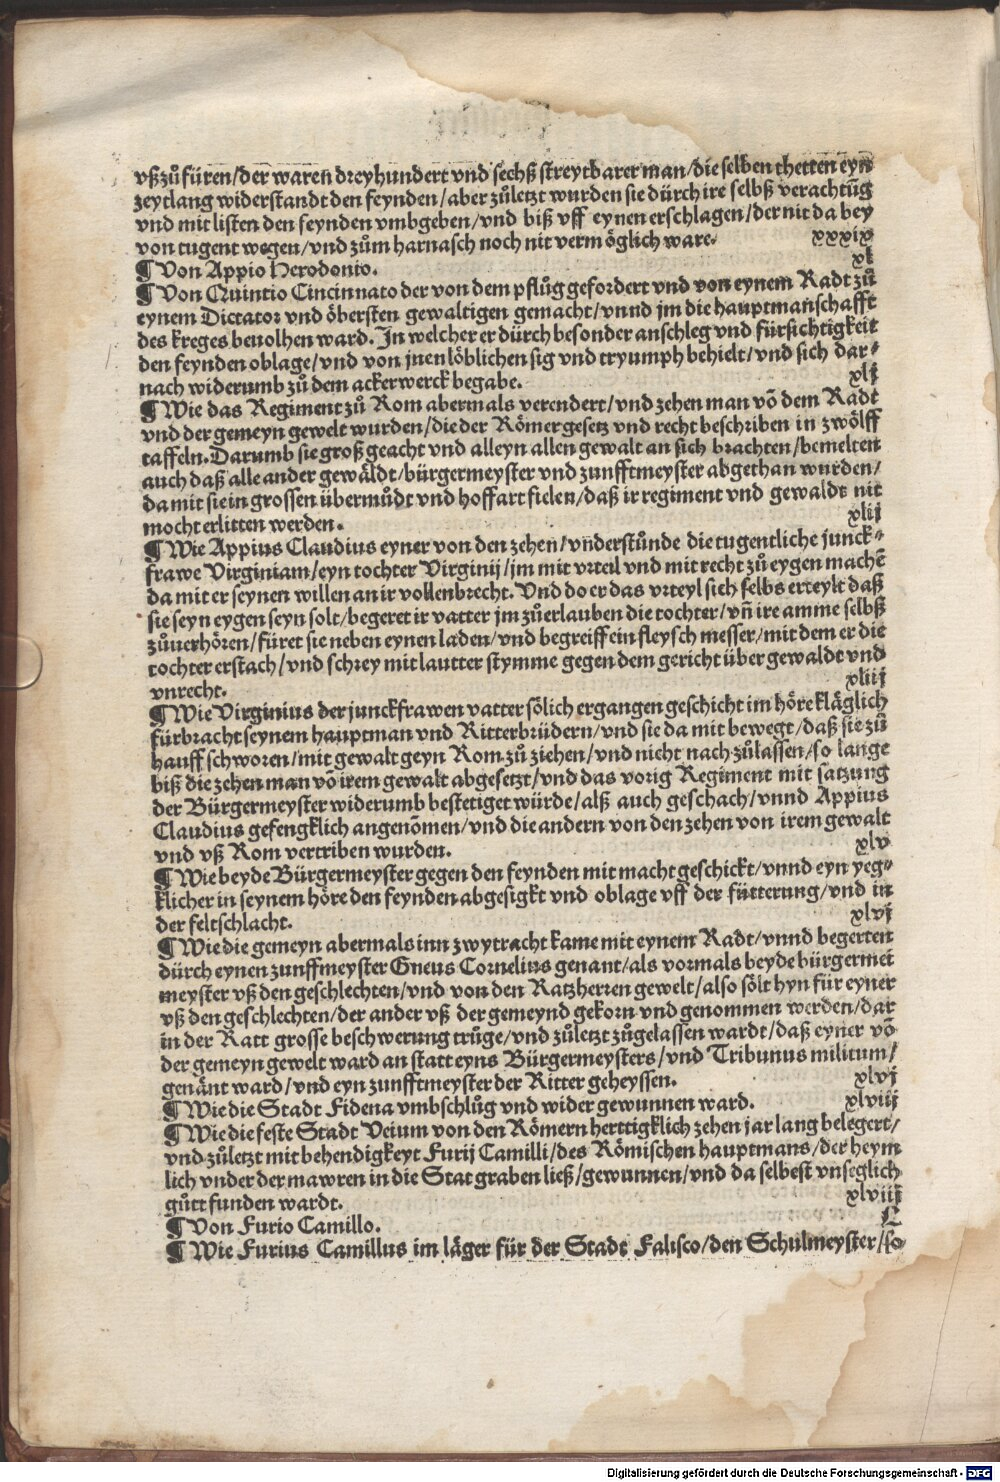 vßzůfüren/der waren dreyhundert vnd sechß streytbarer man/die selben thetten eyn
zeytlang widerstandt den feynden/aber zůletzt wurden sie dürch ire selbß verachtũg
vnd mit listen den feynden vmbgeben/vnd biß vff eynen erschlagen/der nit da bey
von tugent wegen/vnd zům harnasch noch nit vermöglich ware. xxxix
¶ Von Appio Herodonio. xl
¶ Von Quintio Cincinnato der von dem pflůg gefordert vnd von eynem Radt zů
eynem Dictator vnd öbersten gewaltigen gemacht/vnnd jm die hauptmanschafft
des kreges beuolhen ward. In welcher er dürch besonder anschleg vnd fürsichtigkeit
den feynden oblage/vnd von jnen löblichen sig vnd tryumph behielt/vnd sich dar⸗
nach widerumb zů dem ackerwerck begabe. xlj
¶ Wie das Regiment zů Rom abermals verendert/vnd zehen man võ dem Radt
vnd der gemeyn gewelt wurden/die der Römer gesetz vnd recht beschriben in zwölff
taffeln. Darumb sie groß geacht vnd alleyn allen gewalt an sich brachten/bemelten
auch daß alle ander gewäldt/bürgermeyster vnd zunfftmeyster abgethan wurden/
da mit sie in grossen übermůdt vnd hoffart fielen/daß ir regiment vnd gewaldt nit
mocht erlitten werden. xlij
¶ Wie Appius Claudius eyner von den zehen/vñderstůnde die tugentliche junck⸗
frawe Virginiam/eyn tochter Virginij/jm mit vrteil vnd mit recht zů eygen machẽ
da mit er seynen willen an ir vollenbrecht. Vnd do er das vrteyl sich selbs erteylt daß
sie seyn eygen seyn solt/begeret ir vatter jm zůerlauben die tochter/vñ ire amme selbß
zůuerhören/füret sie neben eynen laden/vnd begreiff ein fleysch messer/mit dem er die
tochter erstach/vnd schrey mit lautter stymme gegen dem gericht über gewaldt vnd
vnrecht. xliij
¶ Wie Virginius der junckfrawen vatter sölich ergangen geschicht im höre kläglich
fürbracht seynem hauptman vnd Ritterbrüdern/vnd sie da mit bewegt/daß sie zů
hauff schworen/mit gewalt geyn Rom zů ziehen/vnd nicht nach zůlassen/so lange
biß die zehen man võ irem gewalt abgesetzt/vnd das vorig Regiment mit satzung
der Bürgermeyster widerumb bestetiget würde/alß auch geschach/vnnd Appius
Claudius gefengklich angenõmen/vnd die andern von den zehen von irem gewalt
vnd vß Rom vertriben wurden. xlv
¶ Wie beyde Bürgermeyster gegen den feynden mit macht geschickt/vnnd eyn yeg⸗
klicher in seynem höre den feynden abgesigkt vnd oblage vff der fütterung/vnd in
der feltschlacht. xlvj
¶ Wie die gemeyn abermals inn zwytracht kame mit eynem Radt/vnnd begerten
dürch eynen zunffmeyster Gneus Cornelius genant/als vormals beyde bürgermei
meyster vß den geschlechten/vnd von den Ratzherren gewelt/also sölt hyn für eyner
vß den geschlechten/der ander vß der gemeynd gekorn vnd genommen werden/dar
in der Ratt grosse beschwerung trůge/vnd zůletzt zůgelassen wardt/daß eyner võ
der gemeyn gewelt ward an statt eyns Bürgermeysters/vnd Tribunus militum/
genãnt ward/vnd eyn zunfftmeyster der Ritter geheyssen. xlvj
¶ Wie die Stadt Fidena vmbschlůg vnd wider gewunnen ward. xlviij
¶ Wie die feste Stadt Veium von den Römern herttigklich zehen jar lang belegert/
vnd zůletzt mit behendigkeyt Furij Camilli/des Römischen hauptmans/der heym
lich vnder der mawren in die Stat graben ließ/gewunnen/vnd da selbest vnseglich
gůtt funden wardt. xlviiij
¶ Von Furio Camillo. L
¶ Wie Furius Camillus im läger für der Stadt Falisco/den Schulmeyster/so
Digitalisierung gefördert durch die Deutsche Forschungsgemeinschaft - DFG